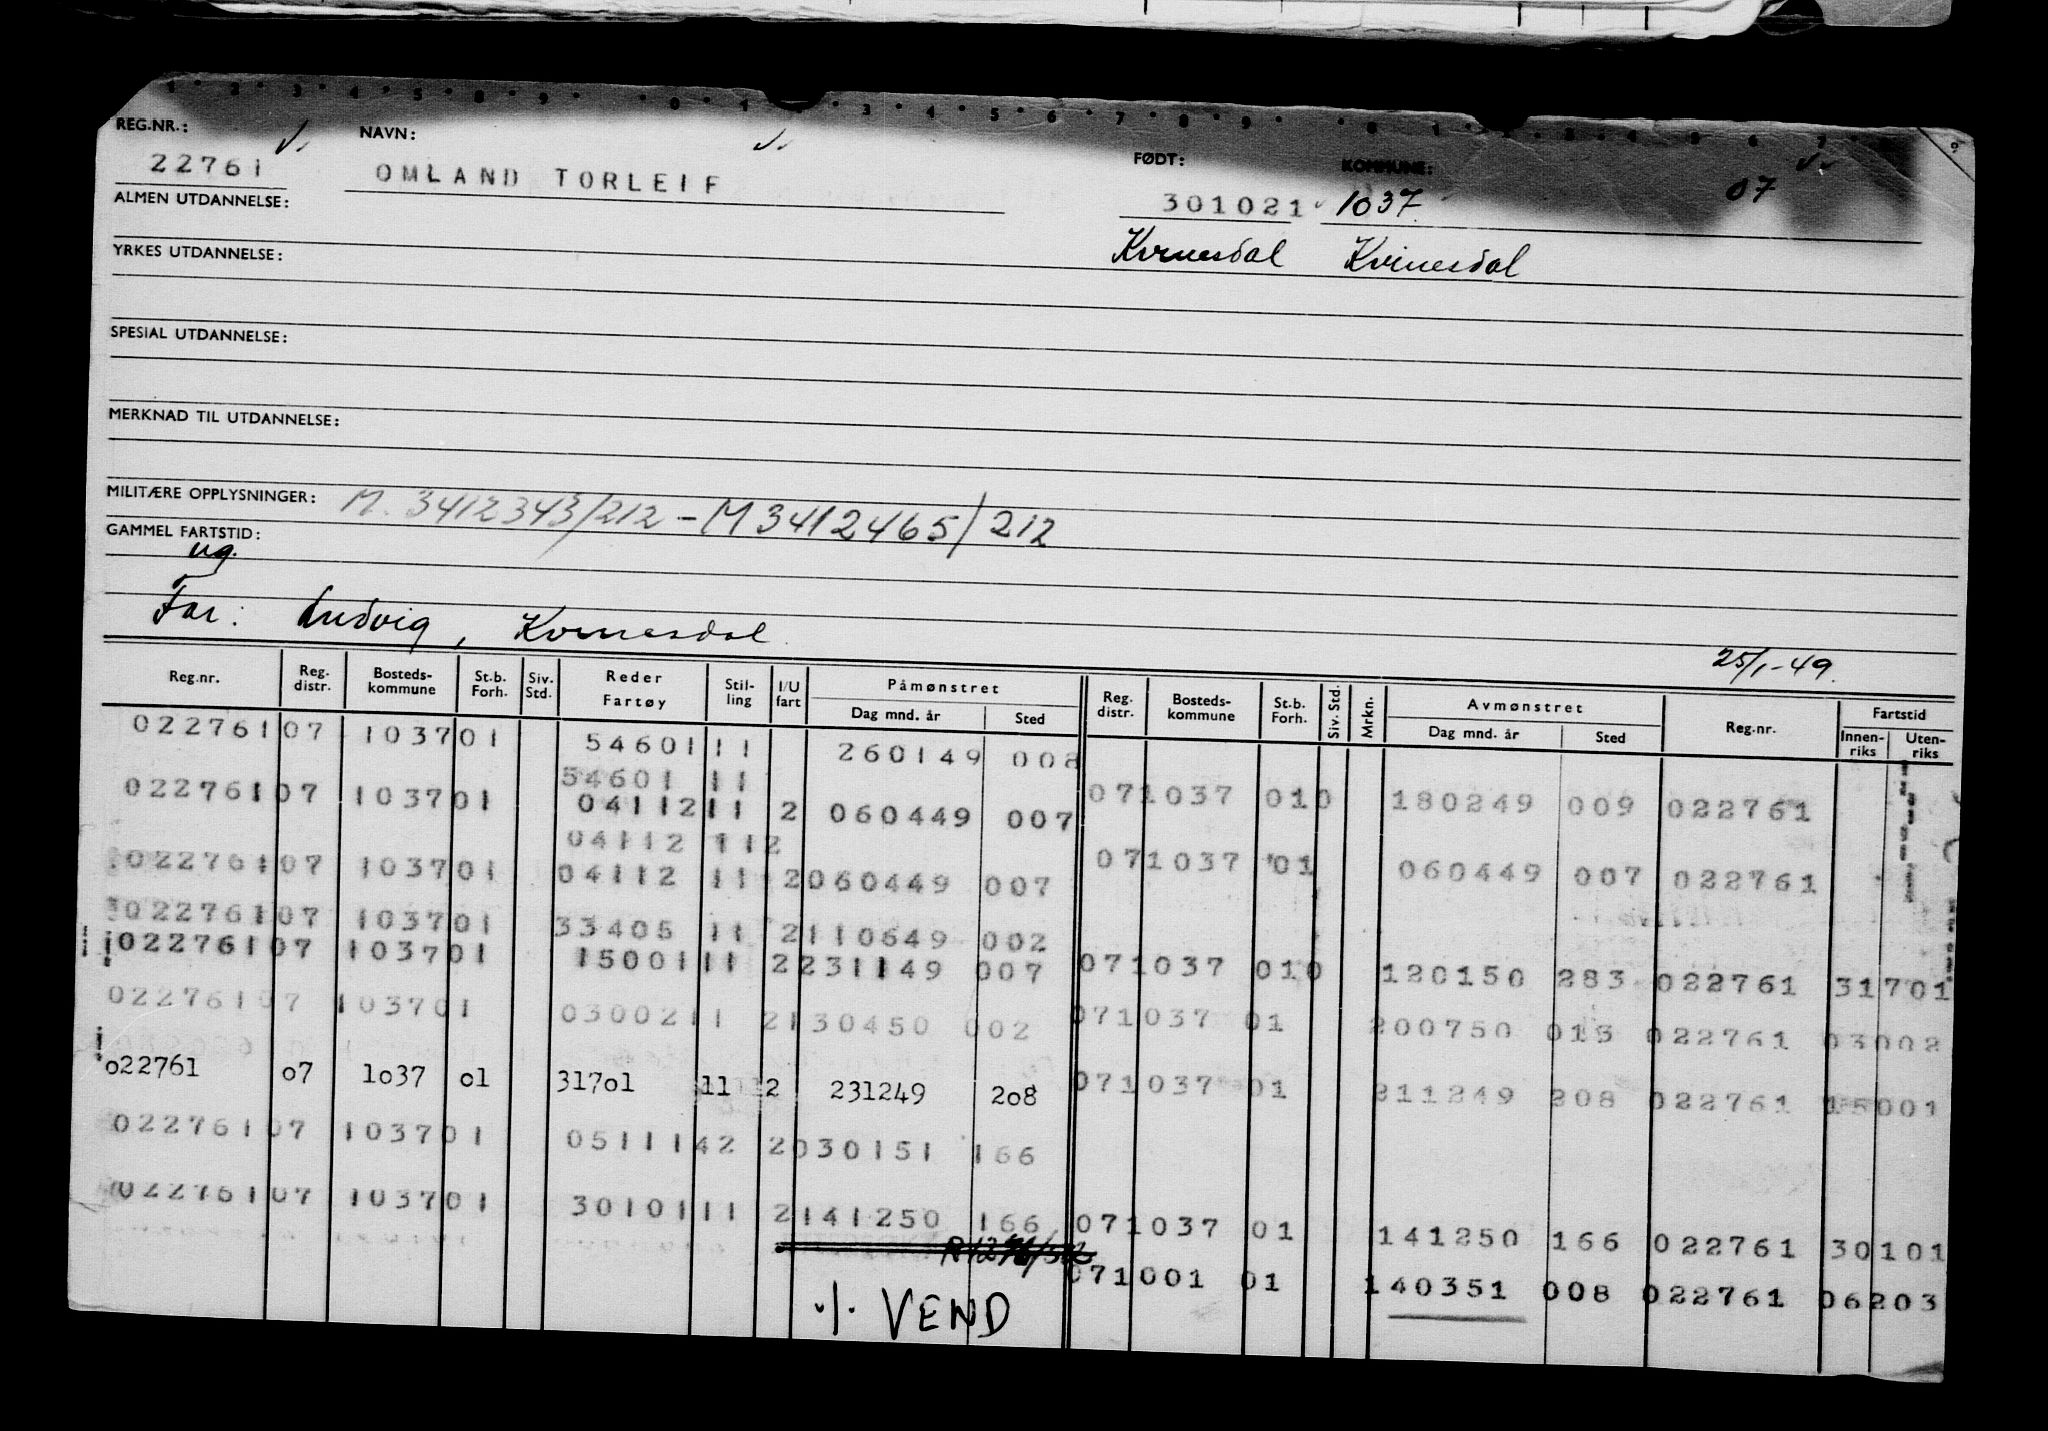 REG.NR.: NAVN: FØDT: KOMMUNE:
22761 OMLAND TORLEIF 301021 1037 07
ALMEN UTDANNELSE:
Kvinesdal Kvinesdal
YRKES UTDANNELSE:
SPESIAL UTDANNELSE:
MERKNAD TIL UTDANNELSE:
MILITÆRE OPPLYSNINGER: M. 3412343/212 - M3412465/212
GAMMEL FARTSTID:
ug.
Far: Ludvig, Kvinesdal.
25/1-49.
Reg.nr. Reg. distr. Bosteds-kommune St.b. Forh. Siv. Std. Reder Fartøy Stil-ling I/U fart Påmønstret Dag mnd. år Sted Reg. distr. Bosteds-kommune St.b. Forh. Siv. Std. Mrkn. Avmønstret Dag mnd. år Sted Reg.nr. Fartstid Innen-riks Uten-riks
022761 07 1037 01 54601 11 260149 008
54601 11
022761 07 1037 01 04112 11 2 060449 007 07 1037 010 180249 009 022761
04112 112
022761 07 1037 01 04112 11 2 060449 007 07 1037 01 060449 007 022761
022761 07 1037 01 33405 11 2 110649 002
022761 07 1037 01 15001 11 2 231149 007 07 1037 010 120150 283 022761 31701
022761 07 1037 01 03002 11 2 130450 002 07 1037 01 200750 013 022761 03002
022761 07 1037 01 31701 11 2 231249 208 07 1037 01 211249 208 022761 15001
022761 07 1037 01 05111 42 2 030151 166
022761 07 1037 01 30101 11 2 141250 166 07 1037 01 141250 166 022761 30101
07 1001 01 140351 008 022761 06203
·/· VEND